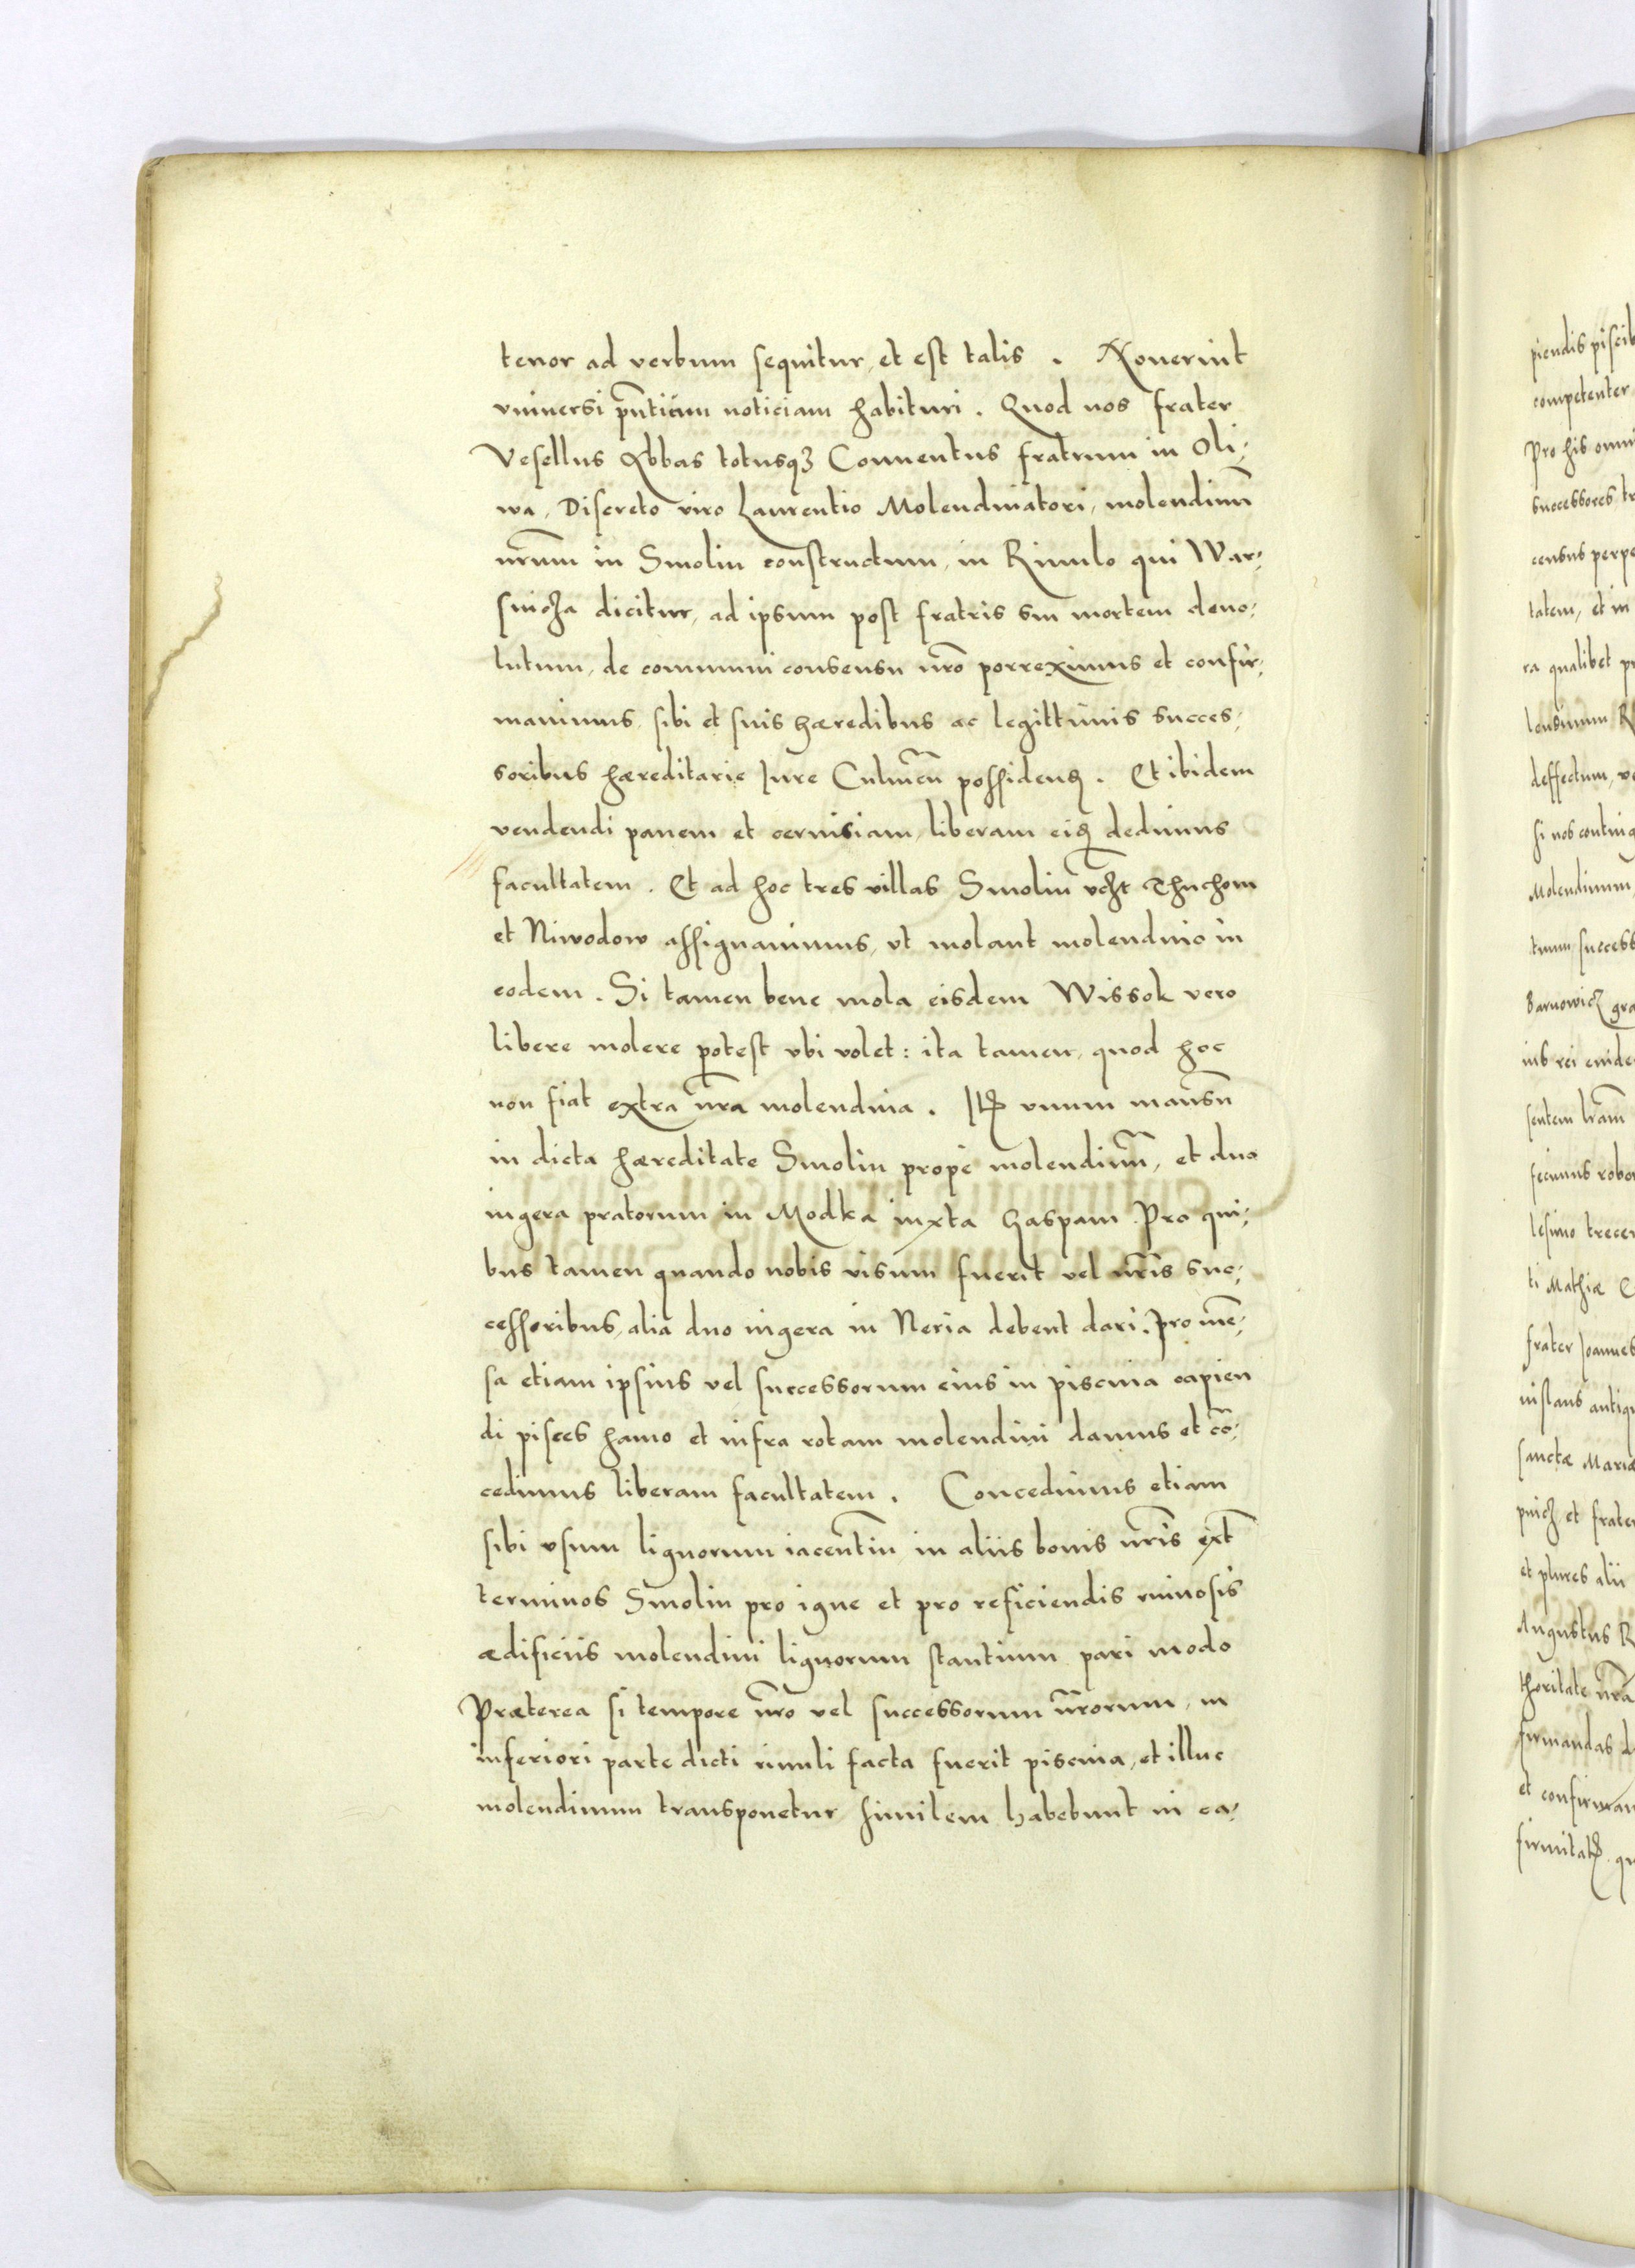 tenor ad verbum sequitur, et est talis. Nouerint
vniuersi pñticum noticiam habituri. Quod nos frater
Vesellus Abbas totusqꝫ Conuentus fratrum in Oli⸗
wa, Discreto viro Laurentio Molendinatori, molendinũ
nr̃um in Smolin constructum, in Riuulo qui War⸗
snicza dicitur, ad ipsum post fratris sui mortem deuo⸗
lutum, de communi consensu nr̃o porreximus et confir⸗
mauimus, sibi et suis hæredibus ac legittimis succes⸗
soribus hæreditarie Iure Culmẽn possidenꝫ. Et ibidem
vendendi panem et ceruisiam, liberam eiꝫ dedimus
facultatem. Et ad hoc tres villas Smolin vcht Thuchom
et Niwodow assignauimus, vt molant molendino in
eodem. Si tamen bene mola eisdem Wissok vero
libere molere potest vbi volet: ita tamen, quod hoc
non fiat extra nr̃a molendina. Itꝫ vnum mansũ
in dicta hæreditate Smolin prope molendinũ, et duo
iugera pratorum in Modka iuxta haspam. Pro qui⸗
bus tamen quando nobis visum fuerit vel nr̃is suc⸗
cessoribus, alia duo iugera in Neria debent dari. Pro mẽ⸗
sa etiam ipsius vel successorum eius in piscina capien
di pisces hamo et infra rotam molendini damus et cõ⸗
cedimus liberam facultatem. Concedimus etiam
sibi vsum lignorum iacentiũ in aliis bonis nr̃is ext̃
terminos Smolin pro igne et pro reficiendis ruinosis
ædificiis molendini lignorum stantium pari modo
Præterea si tempore nr̃o vel successorum nr̃orum, in
inferiori parte dicti riuuli facta fuerit piscina, et illuc
molendinum transponetur similem habebunt in ca⸗
piendis piscib
competenter
Pro his omni
successores tr
census perpe
tatem, et in
ra qualibet pr
lensium R
deffectum, ve
si nos conting
Molendinum
tum success
Sarnowicz gra
ius rei euide
sentem lr̃am
fecimus robor
lesimo trecen
ti Mathiæ
frater Ioannes
nislaus antiqu
sanctæ Mariæ
et frater
et plures alii
Augustus R
thoritate nr̃a
firmandas d
et confirman
firmitatꝫ qu